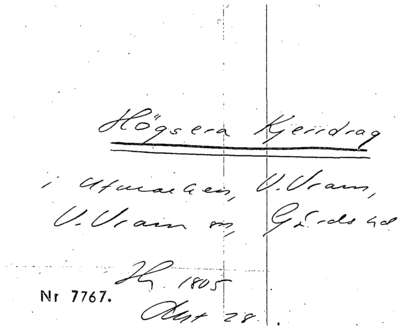 Högsera Kjerrdrag
i utmarken, V. Vram,
V. Vram sn, Gärds hd
Nr 7767.
1805
28